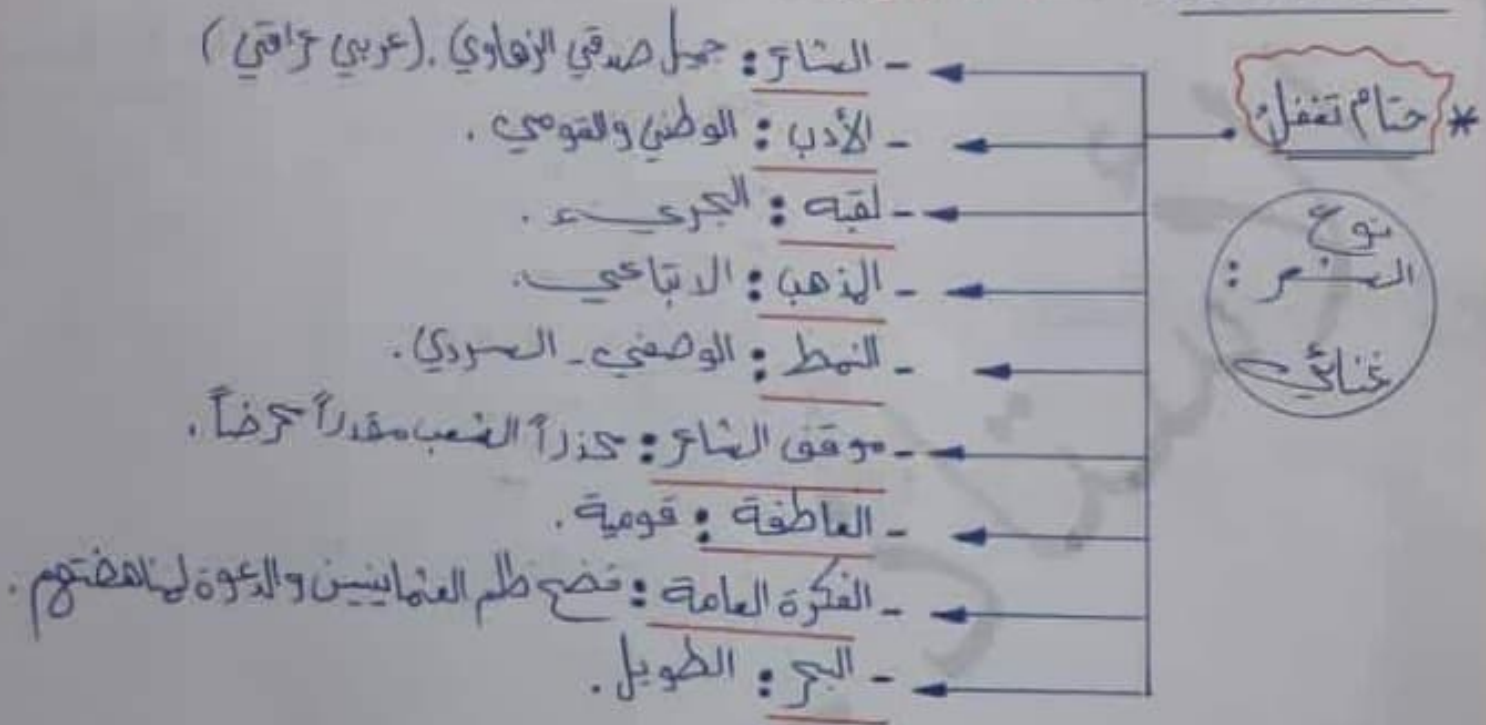 * حتام تغفل
نوع
الشعر :
غنائي
- الشاعر : جميل صدقي الزهاوي . (عربي عراقي)
- الأدب : الوطني والقومي .
- لقبه : الجريء .
- المذهب : الاتباعي .
- النمط : الوصفي - السردي .
- موقف الشاعر : محذراً الشعب مقدراً محرضاً .
- العاطفة : قومية .
- الفكرة العامة : فضح ظلم العثمانيين والدعوة لمناهضتهم .
- البحر : الطويل .